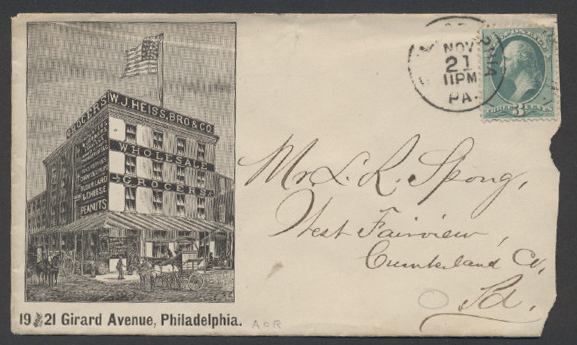 GROCERS W.J. HEISS, BRO & CO.
WHOLESALE
GROCERS
& CHEESE
PEANUTS
19 & 21 Girard Avenue, Philadelphia.
AGR
NOV
21
11PM
PA.
3
Mr. L. R. Spong,
West Fairview,
Cumberland Co.
Pa.